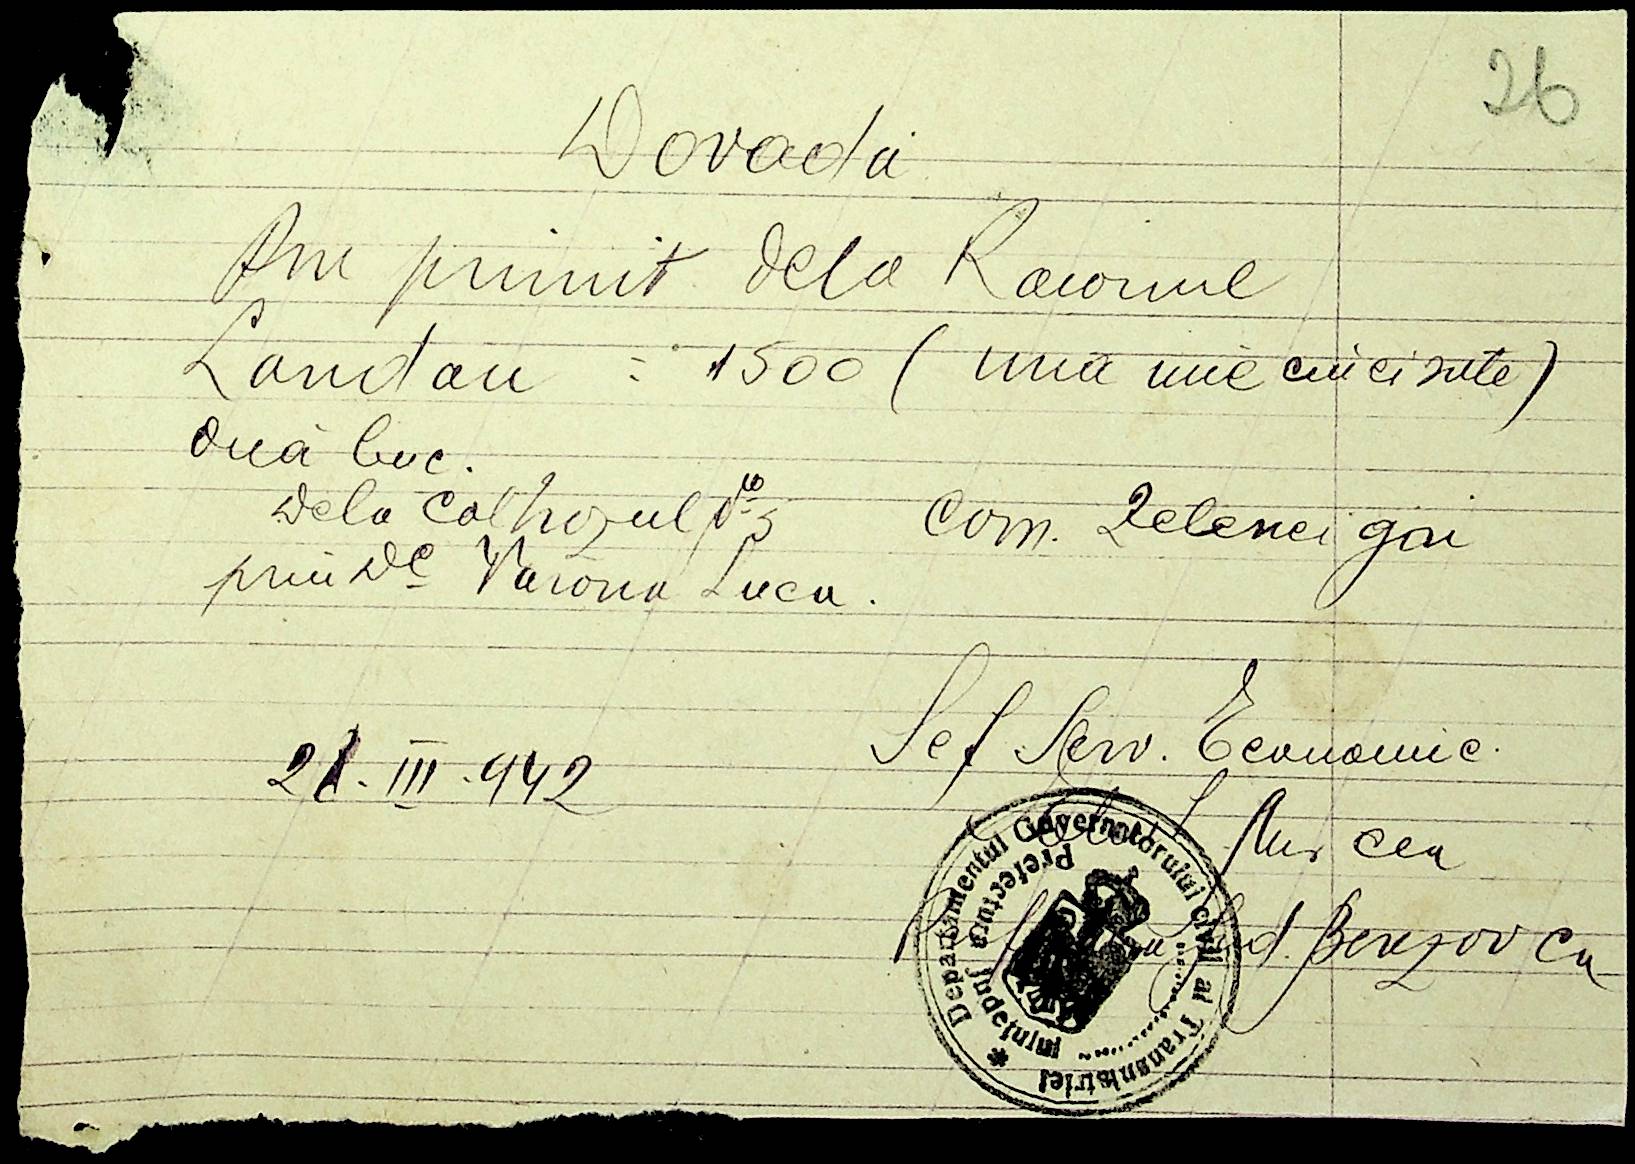 26
Dovadă
Am primit dela Raionul
Landau = 1500 (una mie cinci sute)
ouă buc.
dela colhozul No 3 Com. Zelenei gai
prin Dl Varona Luca.
Sef Serv. Economic.
21.III.942
Mircea
Jud. Berezovca
Departamentul Guvernatorului civil al Transnistriei
Prefectura Judeţului